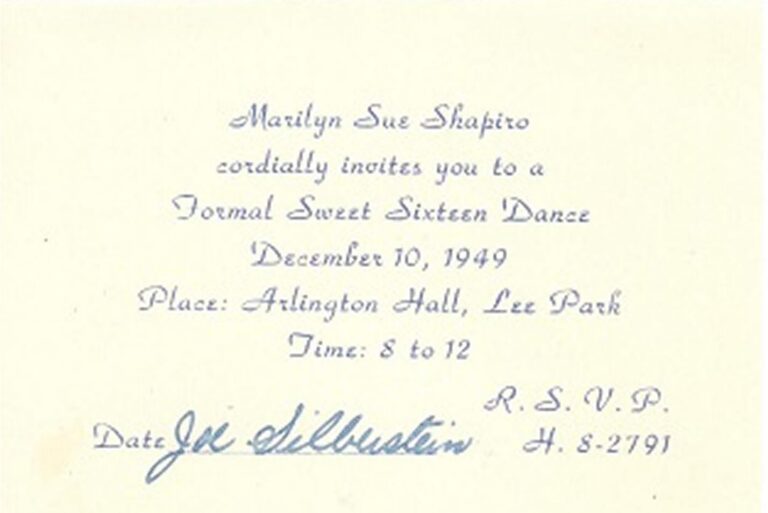 Marilyn Sue Shapiro
cordially invites you to a
Formal Sweet Sixteen Dance
December 10, 1949
Place: Arlington Hall, Lee Park
Time: 8 to 12
R. S. V. P.
Date Joe Silberstein H. 8-2791